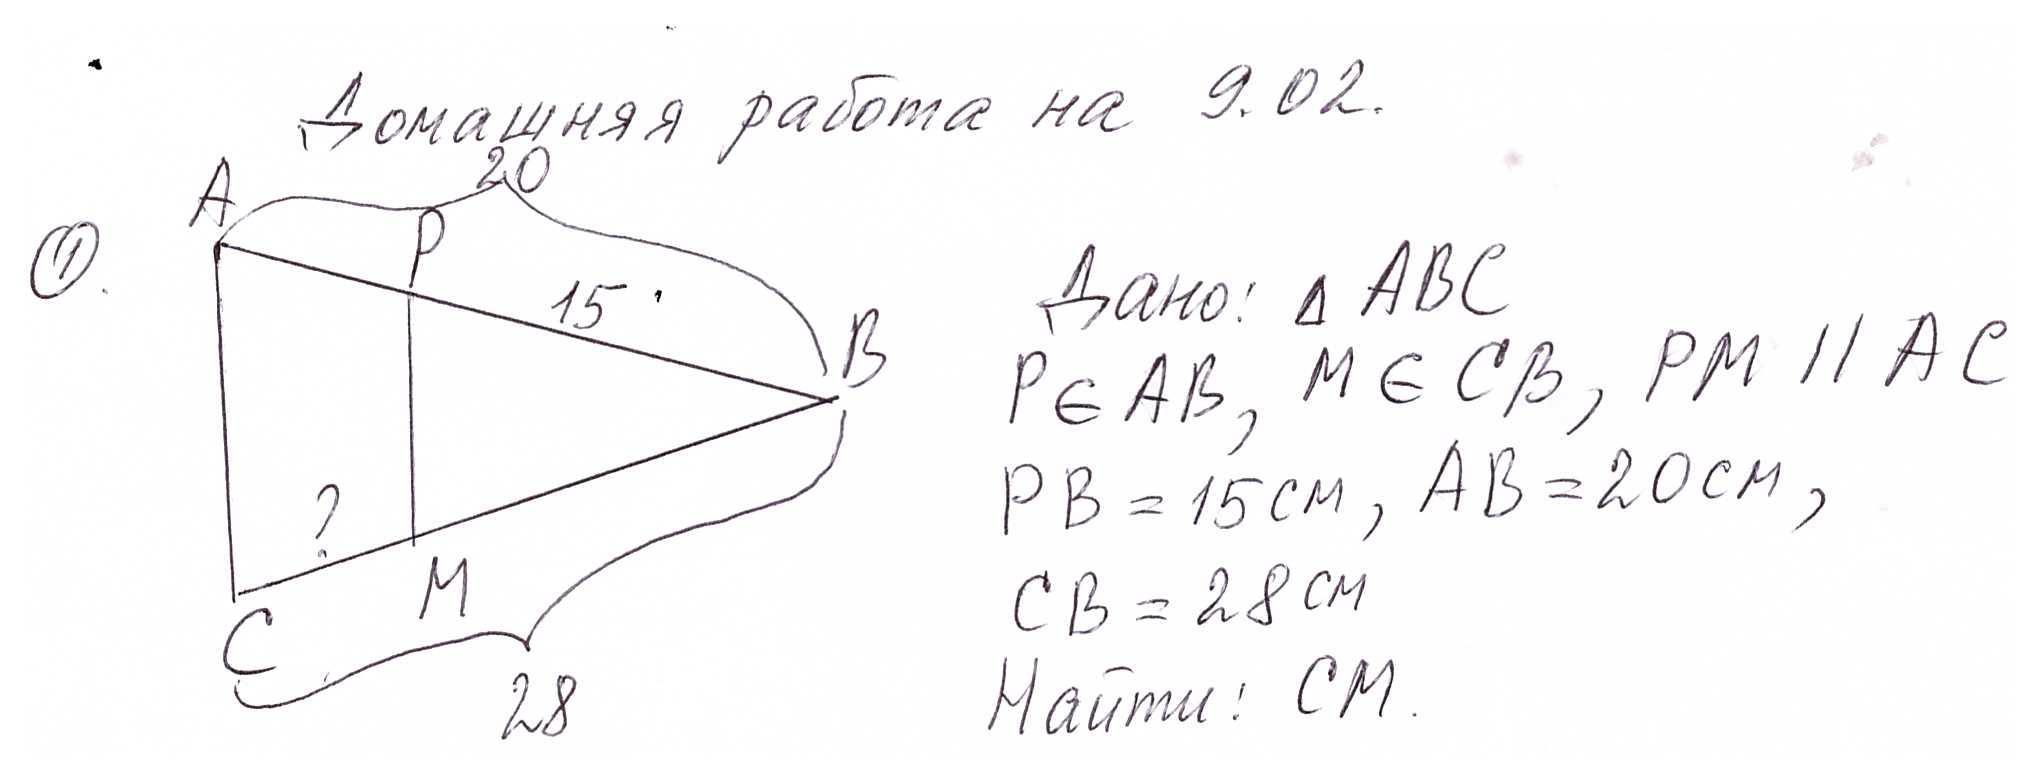 Домашняя работа на 9.02.
20
A
P
①.
15
B
?
M
C
28
Дано: Δ ABC
P∈AB, M∈CB, PM || AC
PB = 15см, AB = 20см,
CB = 28см
Найти: CM.